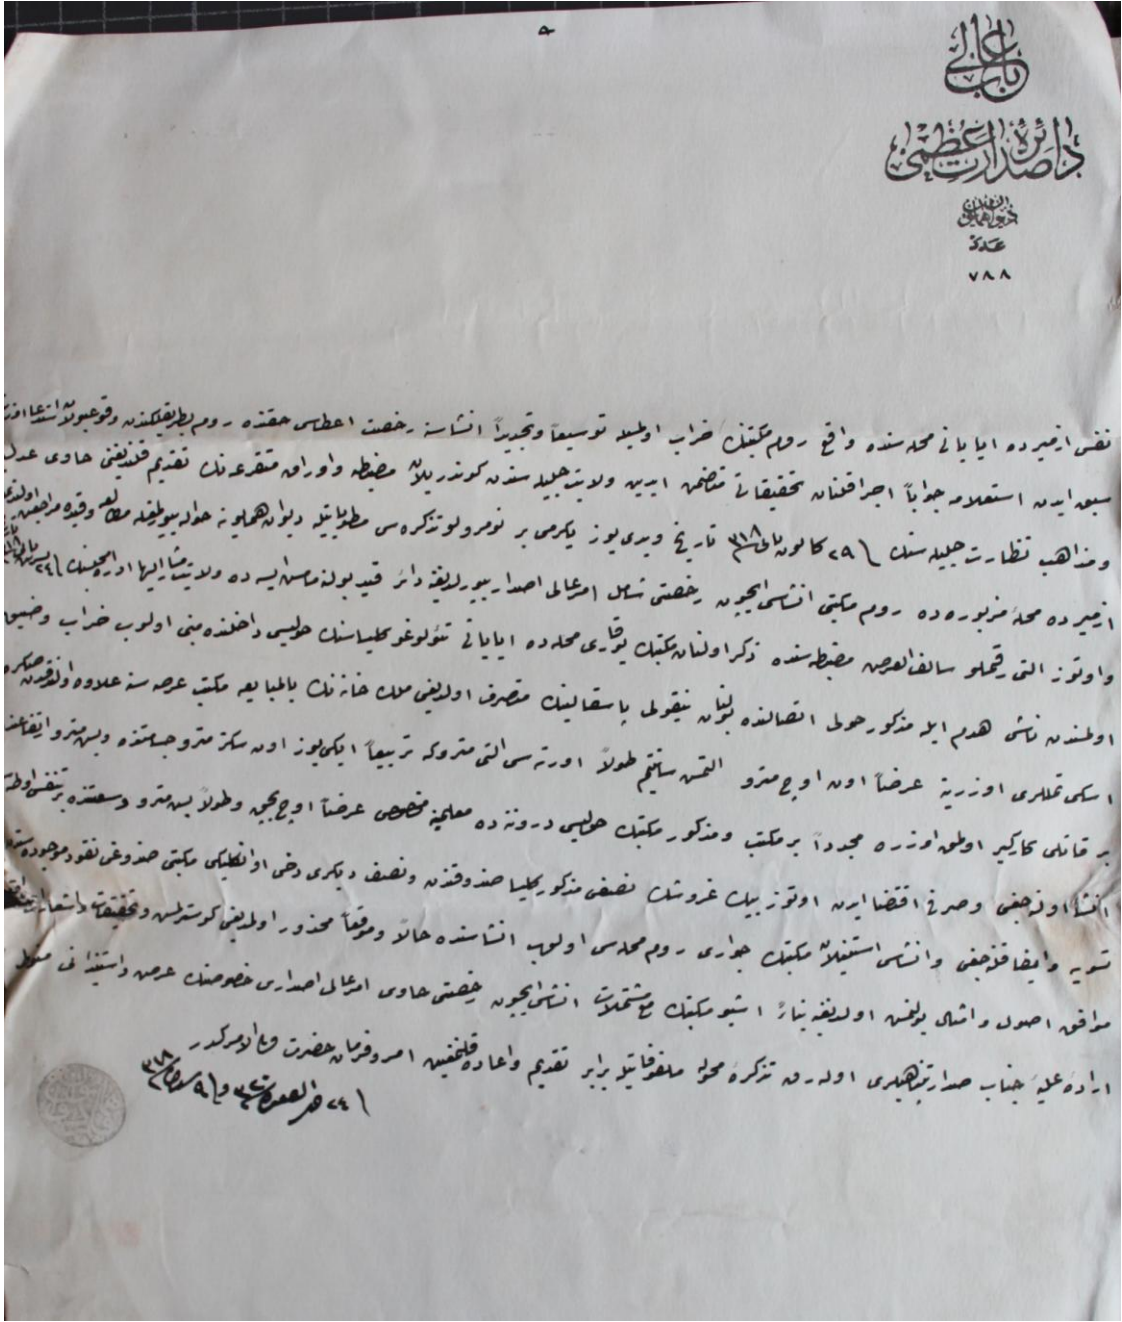 باب عالی
دائرهٔ صدارت عظمی
دیوان همایون
عدد
٧٨٨
نفس ازمیرده ایا یانی محله سنده واقع روم مکتبنك خراب اولمسیله توسیعاً وتجدیداً انشاسنه رخصت اعطاسی حقنده روم بطریقلكندن وقوعبولان استدعا
سبق ایدن استعلامه جواباً اجرا قلنان تحقیقاتی متضمن ایدین ولایت جلیله سندن كوندریلان مضبطه واوراق متفرعه نك تقدیم قلندیغنی حاوی عدلیه
ومذاهب نظارت جلیله سنك ٢٩ كانون ثانی ٣١٨ تاریخ ویدی یوز یكرمی بر نومرولو تذكره سی مطویاتیله دیوان همایونه حواله بیوریلمغله قیده مراجعت اولندقده
ازمیرده محلهٔ مزبوره ده روم مكتبی انشاسیچون رخصتی شامل امر عالی اصدار بیورلدیغنه دائر قید بوله مامش ایسه ده ولایت مشار الیها اداره مجلسنك
واوتوز التی رقملو سالف العرض مضبطه سنده ذكر اولنان مكتبك یوقاری محله ده ایا یانی تئولوغو كلیساسنك حولیسی داخلنده مبنی اولوب خراب وضیق
اولمسندن ناشی هدم ایله مذكور حولی اتصالنده بولنان نیقولی متصرف اولدیغی ملك خانه نك بالمبایعه مكتب عرصه سنه علاوه اولندقدن صكره
اسكی تمللری اوزرینه عرضاً اون اوچ مترو التمش سانتیم طولاً اورته سی التی مترو كه تربیعاً ایكی یوز اون سكز مترو جسامتنده وبش مترو ارتفاعنده
بر قاتلی كاركیر اولمق اوزره مجدداً بر مكتب ومذكور مكتبك حولیسی دروننده معلمینه مخصوص عرضاً اوچ بچق وطولاً بش مترو وسعتنده بر
انشا اولنه جغی وصرفی اقتضا ایدن اوتوز بیك غروشك نصفی مذكور كلیسا صندوقندن ونصف دیكری دخی اوانكلیكی مكتبی صندوغی نقود موجوده سندن
تسویه وایفا قلنه جغی وانشاسی استیذان اولنان مكتبك جواری روم محله سی اولوب انشاسنده حالاً وموقعاً محذور اولمدیغی كوسترلمش وتحقیقات واشعارات
موافق اصول وامثال بولنمش اولدیغنه بناءً اشبو مكتبك مع مشتملات انشاسیچون رخصتی حاوی امر عالی اصداری خصوصنك عرض واستیذانی منوط
ارادهٔ علیهٔ جناب صدارتپناهیلری اوله رق تذكرهٔ محوله ملفوفاتیله برابر تقدیم واعاده قلنمغین امر وفرمان حضرت من له الامركدر